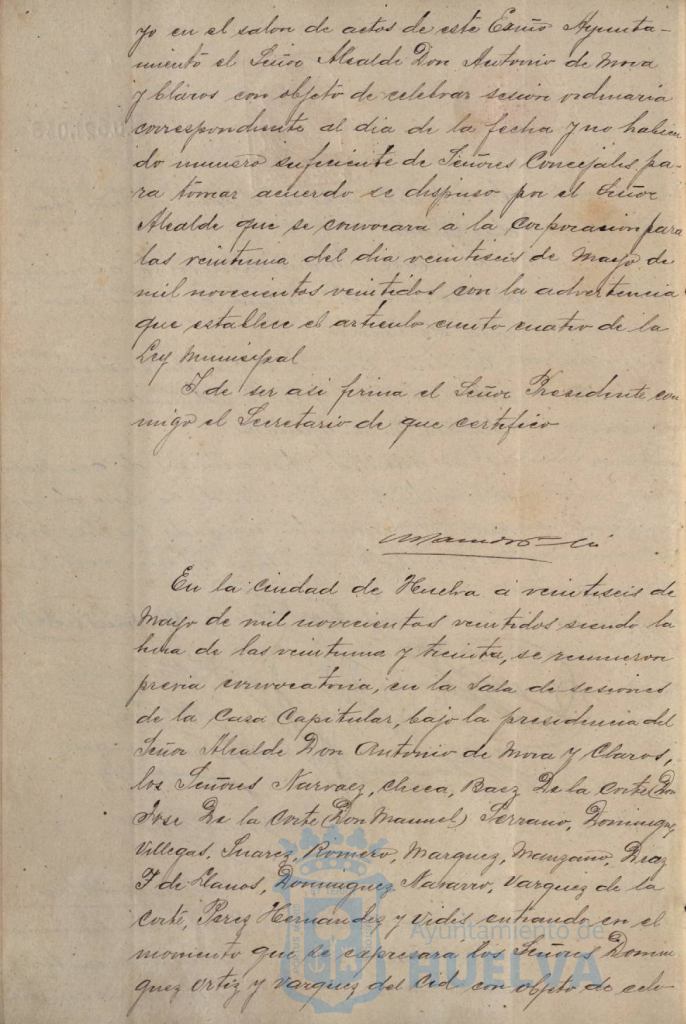 yo en el salon de actos de este Exmo Ayunta-
miento el Señor Alcalde Don Antonio de Mora
y Claros con objeto de celebrar sesion ordinaria
correspondiente al dia de la fecha y no habien
do numero suficiente de Señores Concejales pa-
ra tomar acuerdo se dispuso por el Señor
Alcalde que se convocara á la Corporacion para
las veintiuna del dia veintiseis de Mayo de
mil novecientos veintidos con la advertencia
que establece el articulo ciento cuatro de la
Ley Municipal
Y de ser asi firma el Señor Presidente con
migo el Secretario de que certifico
En la Ciudad de Huelva á veintiseis de
Mayo de mil novecientos veintidos siendo la
hora de las veintiuna y treinta, se reunieron
previa convocatoria, en la Sala de sesiones
de la Casa Capitular, bajo la presidencia del
Señor Alcalde Don Antonio de Mora y Claros,
los Señores Narvaez, Checa, Baez De la Corte (Don
Jose De la Corte (Don Manuel) Serrano, Dominguez
Villegas, Suarez, Romero, Marquez, Manzano, Diaz
Y de Llanos, Dominguez Navarro, Vazquez de la
Corte, Perez Hernandez y Vides entrando en el
momento que se expresara los Señores Domin
guez Ortiz y Vazquez del Cid con objeto de cele
Ayuntamiento de
HUELVA